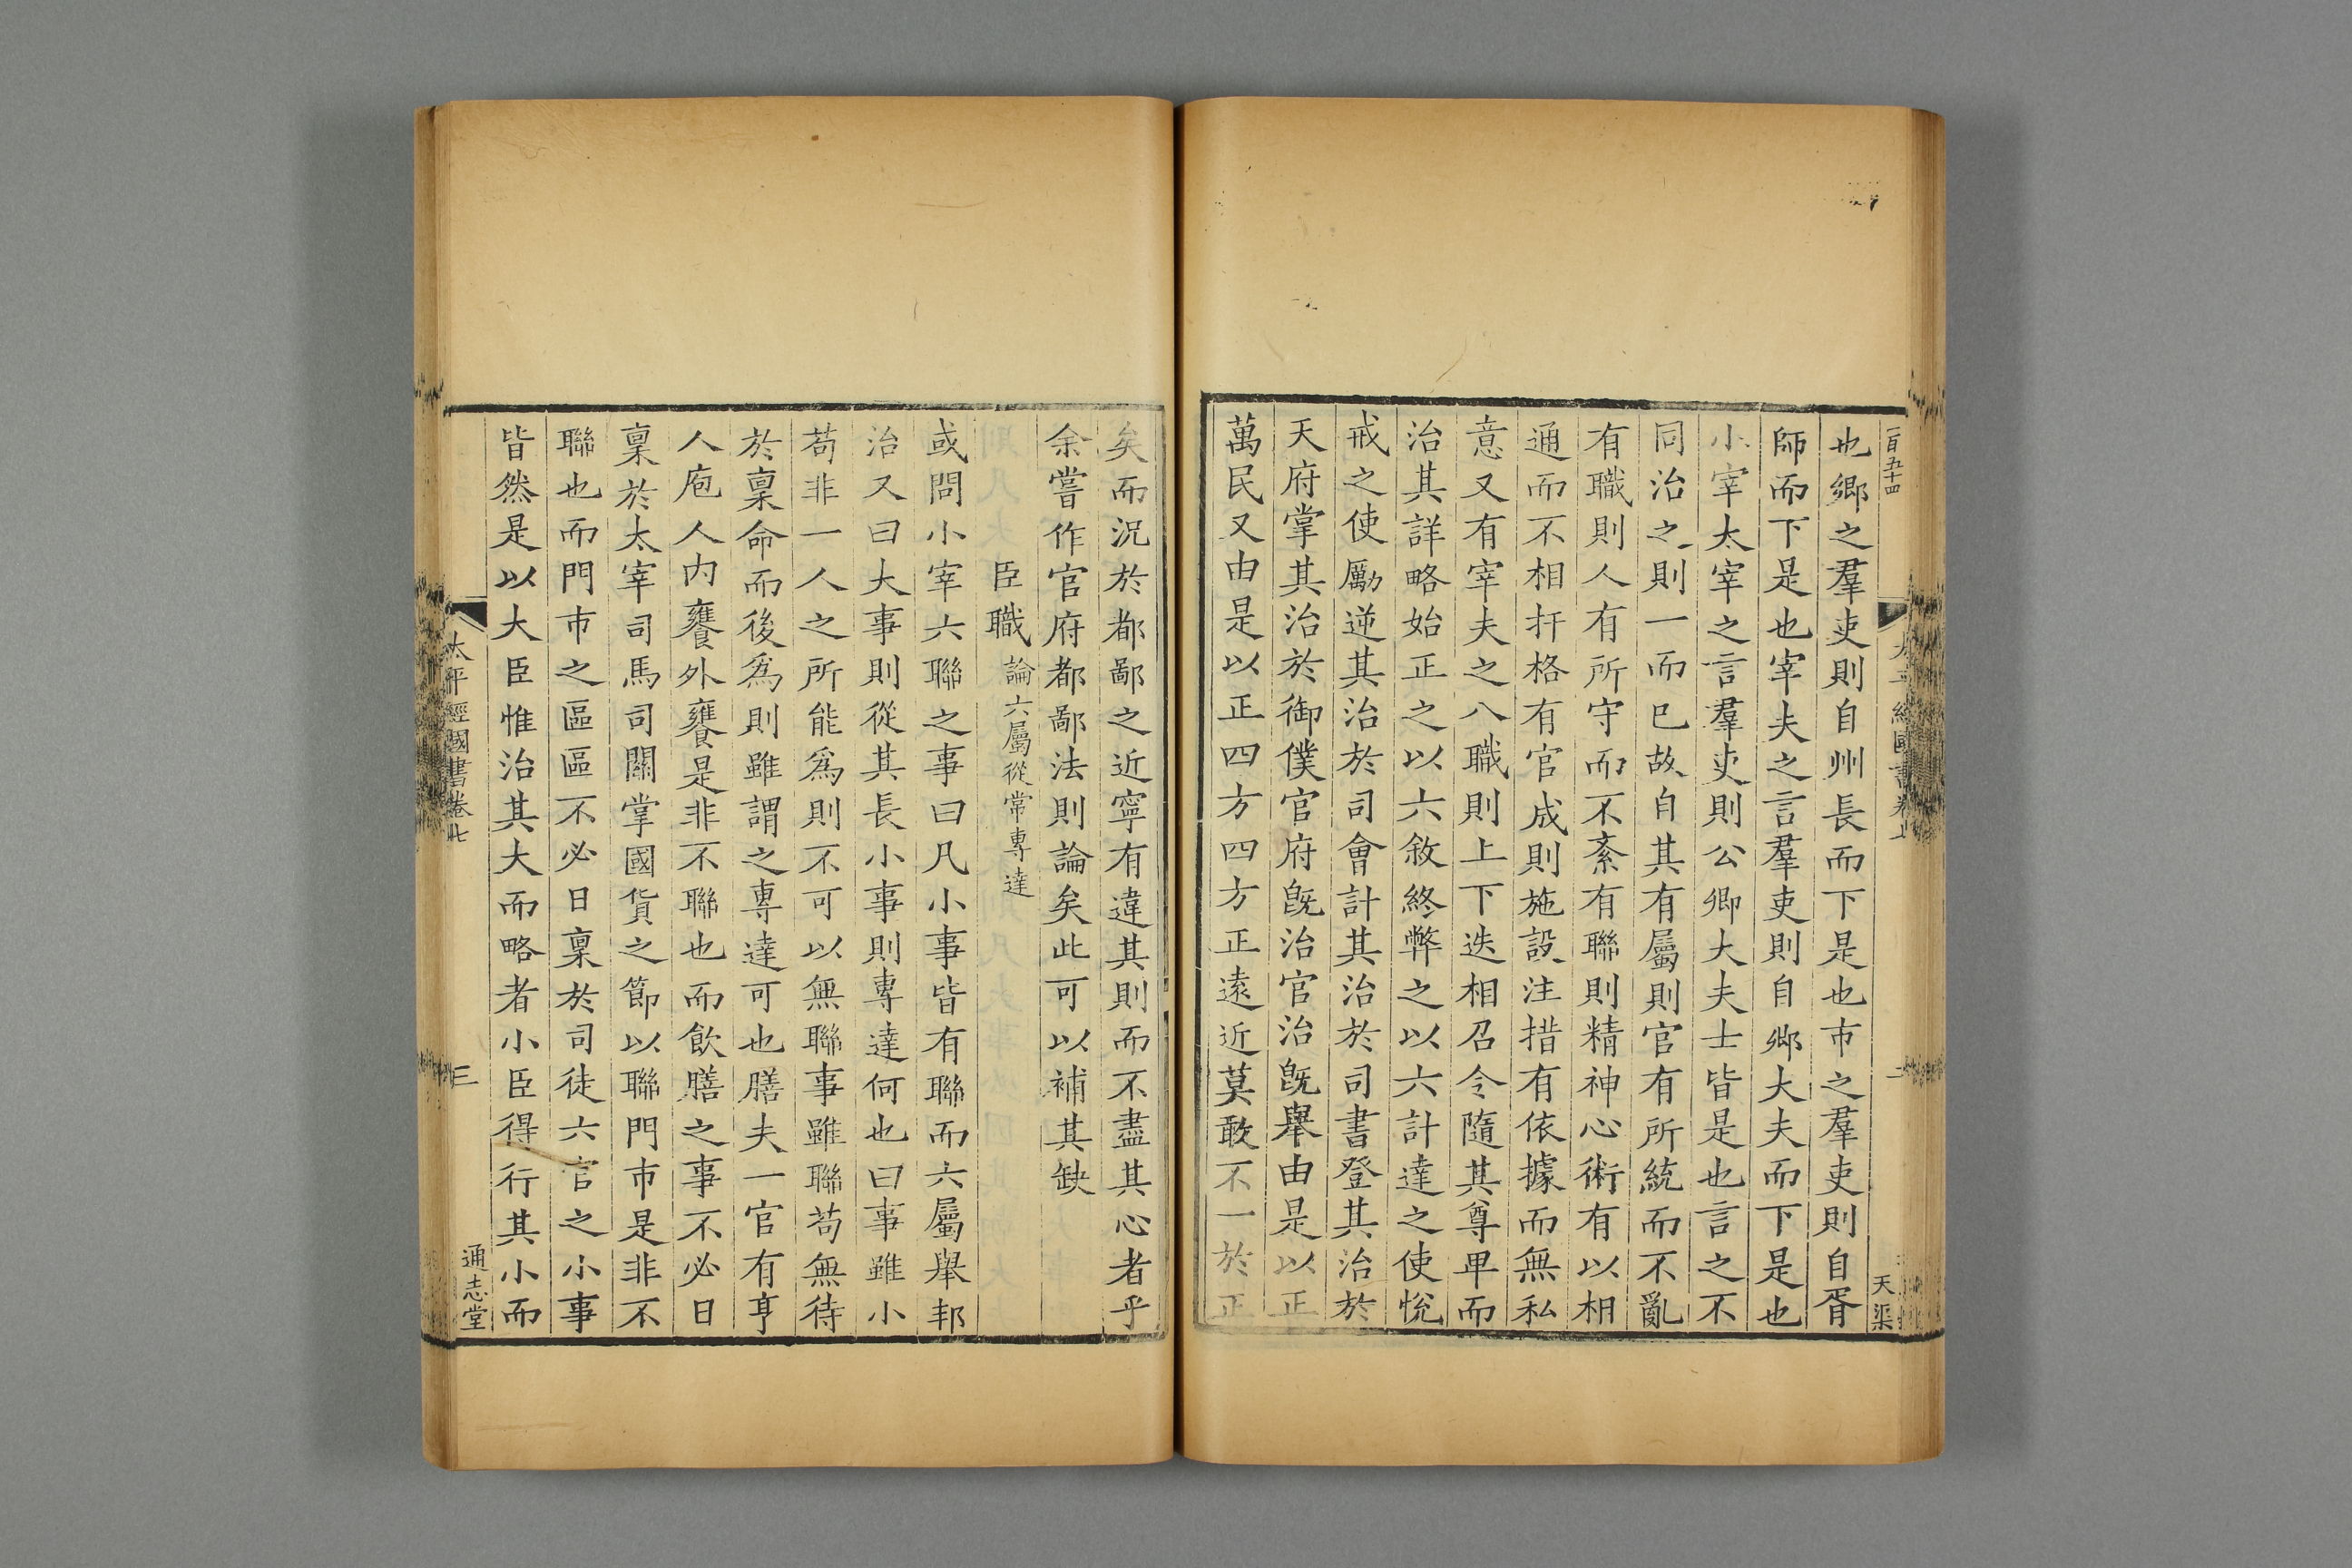 一百五十四
天渠
也鄉之羣吏則自州長而下是也市之羣吏則自胥
師而下是也宰夫之言羣吏則自鄉大夫而下是也
小宰太宰之言羣吏則公卿大夫士皆是也言之不
同治之則一而已故自其有屬則官有所統而不亂
有職則人有所守而不紊有聯則精神心術有以相
通而不相扞格有官成則施設注措有依據而無私
意又有宰夫之八職則上下迭相召令隨其尊卑而
治其詳略始正之以六敘終弊之以六計達之使悅
戒之使勵逆其治於司會計其治於司書登其治於
天府掌其治於御僕官府旣治官治旣舉由是以正
萬民又由是以正四方四方正遠近莫敢不一於正
矣而況於都鄙之近寧有違其則而不盡其心者乎
余嘗作官府都鄙法則論矣此可以補其缺
臣職論六屬從常專達
或問小宰六聯之事曰凡小事皆有聯而六屬舉邦
治又曰大事則從其長小事則專達何也曰事雖小
苟非一人之所能爲則不可以無聯事雖聯苟無待
於稟命而後爲則雖謂之專達可也膳夫一官有亨
人庖人内饔外饔是非不聯也而飲膳之事不必日
稟於太宰司馬司關掌國貨之節以聯門市是非不
聯也而門市之區區不必日稟於司徒六官之小事
皆然是以大臣惟治其大而略者小臣得行其小而
太平經國書卷七
三
通志堂